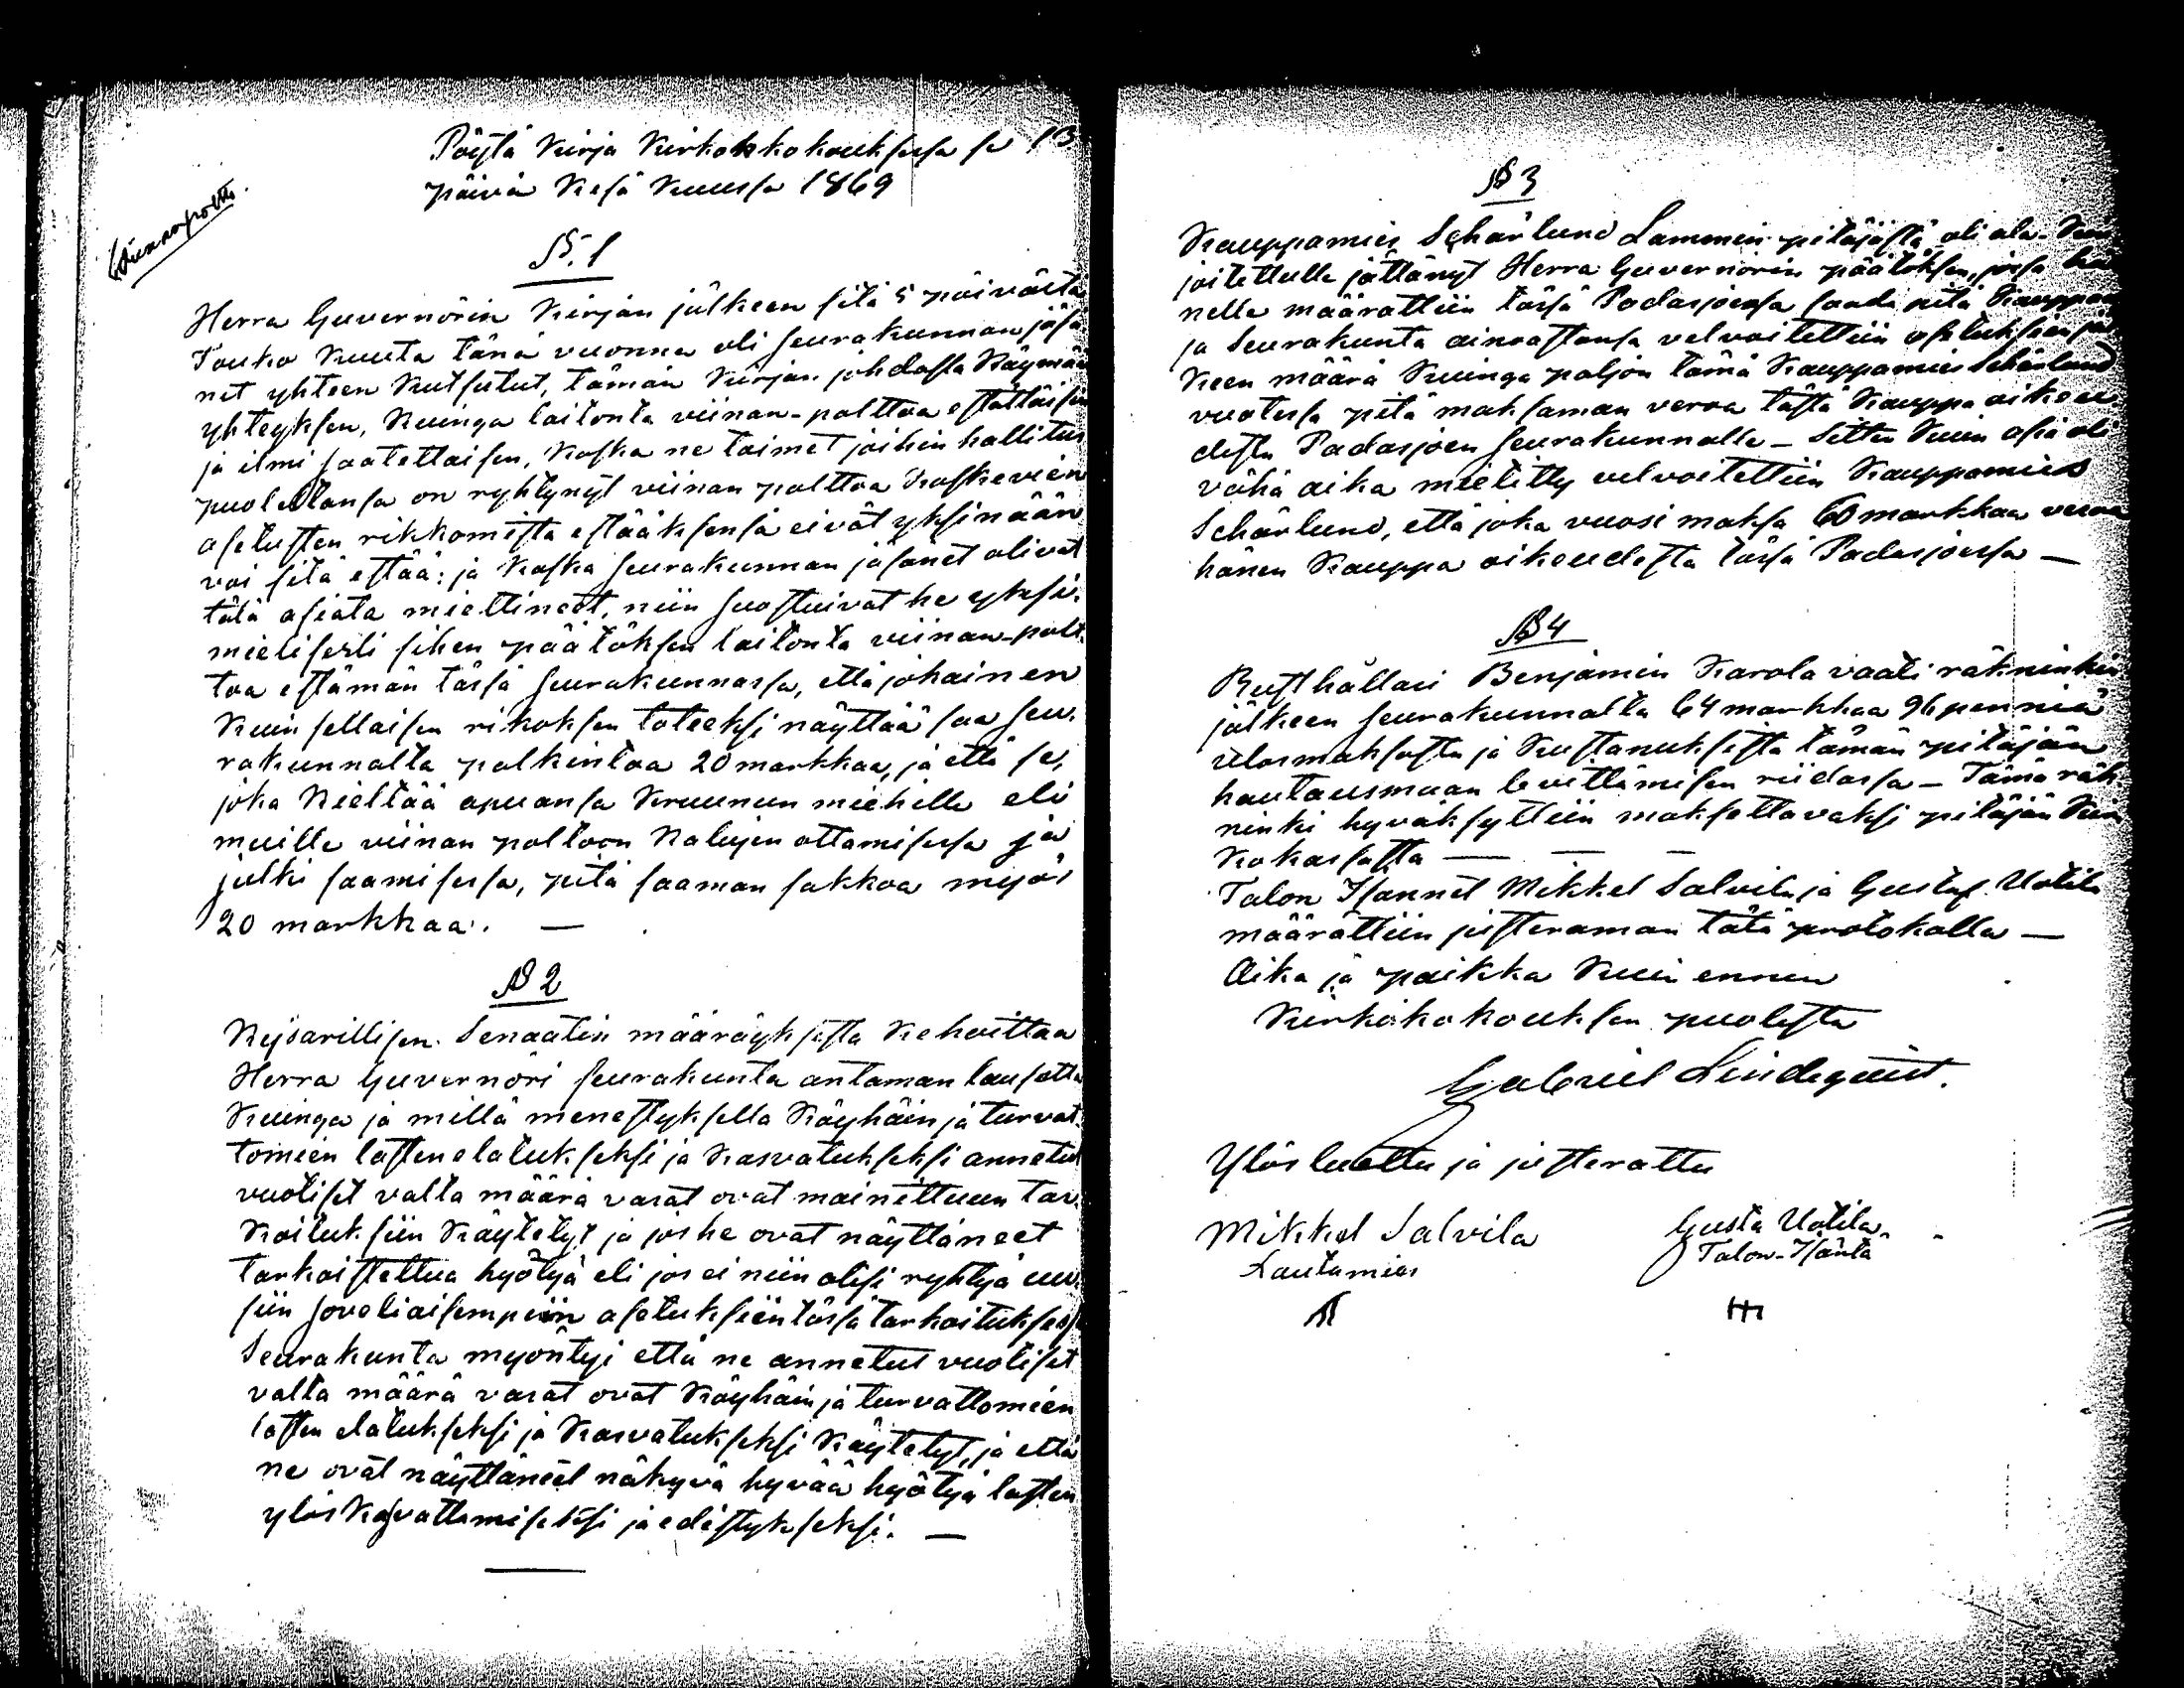 Pöytä Kirja Kirkonkokouksesa se 13
päivä Kesä Kuussa 1869
Viinanpoltto.
§. 1
Herra Guvernörin Kirjan jälkeen sitä 5 päivästä
Touko Kuuta tänä vuonna oli seurakunnan jäse
net yhteen Kutsutut, tämän Kirjan johdosta Käymän
yhteyksen, Kuinga laitonta viinan-polttoa estettäisen
ja ilmi saatettaisen, Koska ne toimet joihin hallitus
puolestansa on ryhtynyt viinan polttoa Koskevien
asetusten rikkomista estääksensä eivät yksinään
voi sitä estää; ja Koska seurakunnan jäsenet olivat
tätä asiata miettineet, niin suostuivat he yksi-
mielisesti sihen päätöksen laitonta viinan-polt-
toa estämän tässä seurakunnassa, että johainen
Kuin sellaisen rikoksen toteeksi näyttää saa seu-
rakunnalta palkintoa 20 markkaa, ja että se,
joka Kieltää apuansa Kruunun miehille eli
muille viinan polton Kalujen ottamisessa ja
julki saamisessa, pitä saaman sakkoa myös
20 markkaa. —
§ 2
Keisarillisen Senaatin määräyksestä Kehoittaa
Herra Guvernöri seurakunta antaman lausetta
Kuinga ja millä menestyksellä Köyhäin ja turvat-
tomien lasten elatukseksi ja Kasvatukseksi annetut
vuotiset valta määrä varat ovat mainittuun tar-
koituksiin Käytetyt ja jos he ovat näyttäneet
tarkoistettua hyötyä eli jos ei niin olisi ryhtyä uu-
siin soveliaisempiin asetuksiin tässä tarkoituksess
Seurakunta myöntyi että ne annetut vuotiset
valta määrä varat ovat Köyhäin ja turvattomien
lasten elatukseksi ja Kasvatukseksi Käytetyt, ja että
ne ovat näyttäneet näkyvä hyvää hyötyä lasten
ylöskasvattamiseksi ja edistykseksi. —
§ 3
Kauppamies Schärlund Lammin pitäjästä oli ala-Kir
joitettulle jättänyt Herra Guvernörin päätöksen, jossa hä
nelle määrättiin tässä Padasjoessa saada pitä Kauppaa
ja Seurakunta ainoastansa velvoitettiin asetuksen jä
Keen määrä Kuinga paljon tämä Kauppamies Schärlund
vuotessa pitä maksaman veroa tästä Kauppa oikeu
desta Padasjoen seurakunnalle — Sitte Kuin asia oli
vähä aika mietitty velvoitettiin Kauppamies
Schärlund, että joka vuosi maksa 60 markkaa veroa
hänen Kauppa oikeudesta tässä Padasjoessa —
§ 4
Rusthållari Benjamin Karola vaati räkninkin
jälkeen seurakunnalta 64 markkaa 96 penniä
ulosmaksosta ja Kustanuksista tämän pitäjän
hautausmaan levittämisen riidassa — Tämä räk
ninki hyväksyttiin maksettavaksi pitäjän Viin
Kokassasta — — —
Talon Isännet Mikkel Salvila ja Gustaf Uotila
määrättiin justeraman tätä protokolla —
Aika ja paikka Kuin ennen
Kirkokokouksen puolesta
Gabriel Lindequist.
Ylösluettu ja justerattu
Mikkel Salvila
Lautamies
Gusta Uotila
Talon-Isäntä